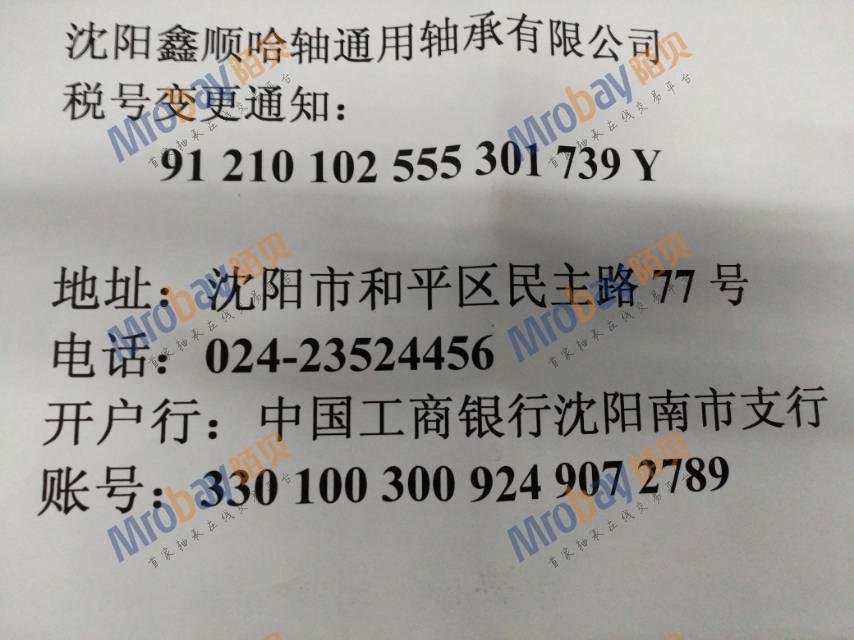 沈阳鑫顺哈轴通用轴承有限公司
税号变更通知：
91 210 102 555 301 739 Y
地址：沈阳市和平区民主路 77 号
电话：024-23524456
开户行：中国工商银行沈阳南市支行
账号：330 100 300 924 907 2789
Mrobay陌贝
首家轴承在线交易平台
Mrobay陌贝
首家轴承在线交易平台
Mrobay陌贝
首家轴承在线交易平台
Mrobay陌贝
首家轴承在线交易平台
Mrobay陌贝
首家轴承在线交易平台
Mrobay陌贝
首家轴承在线交易平台